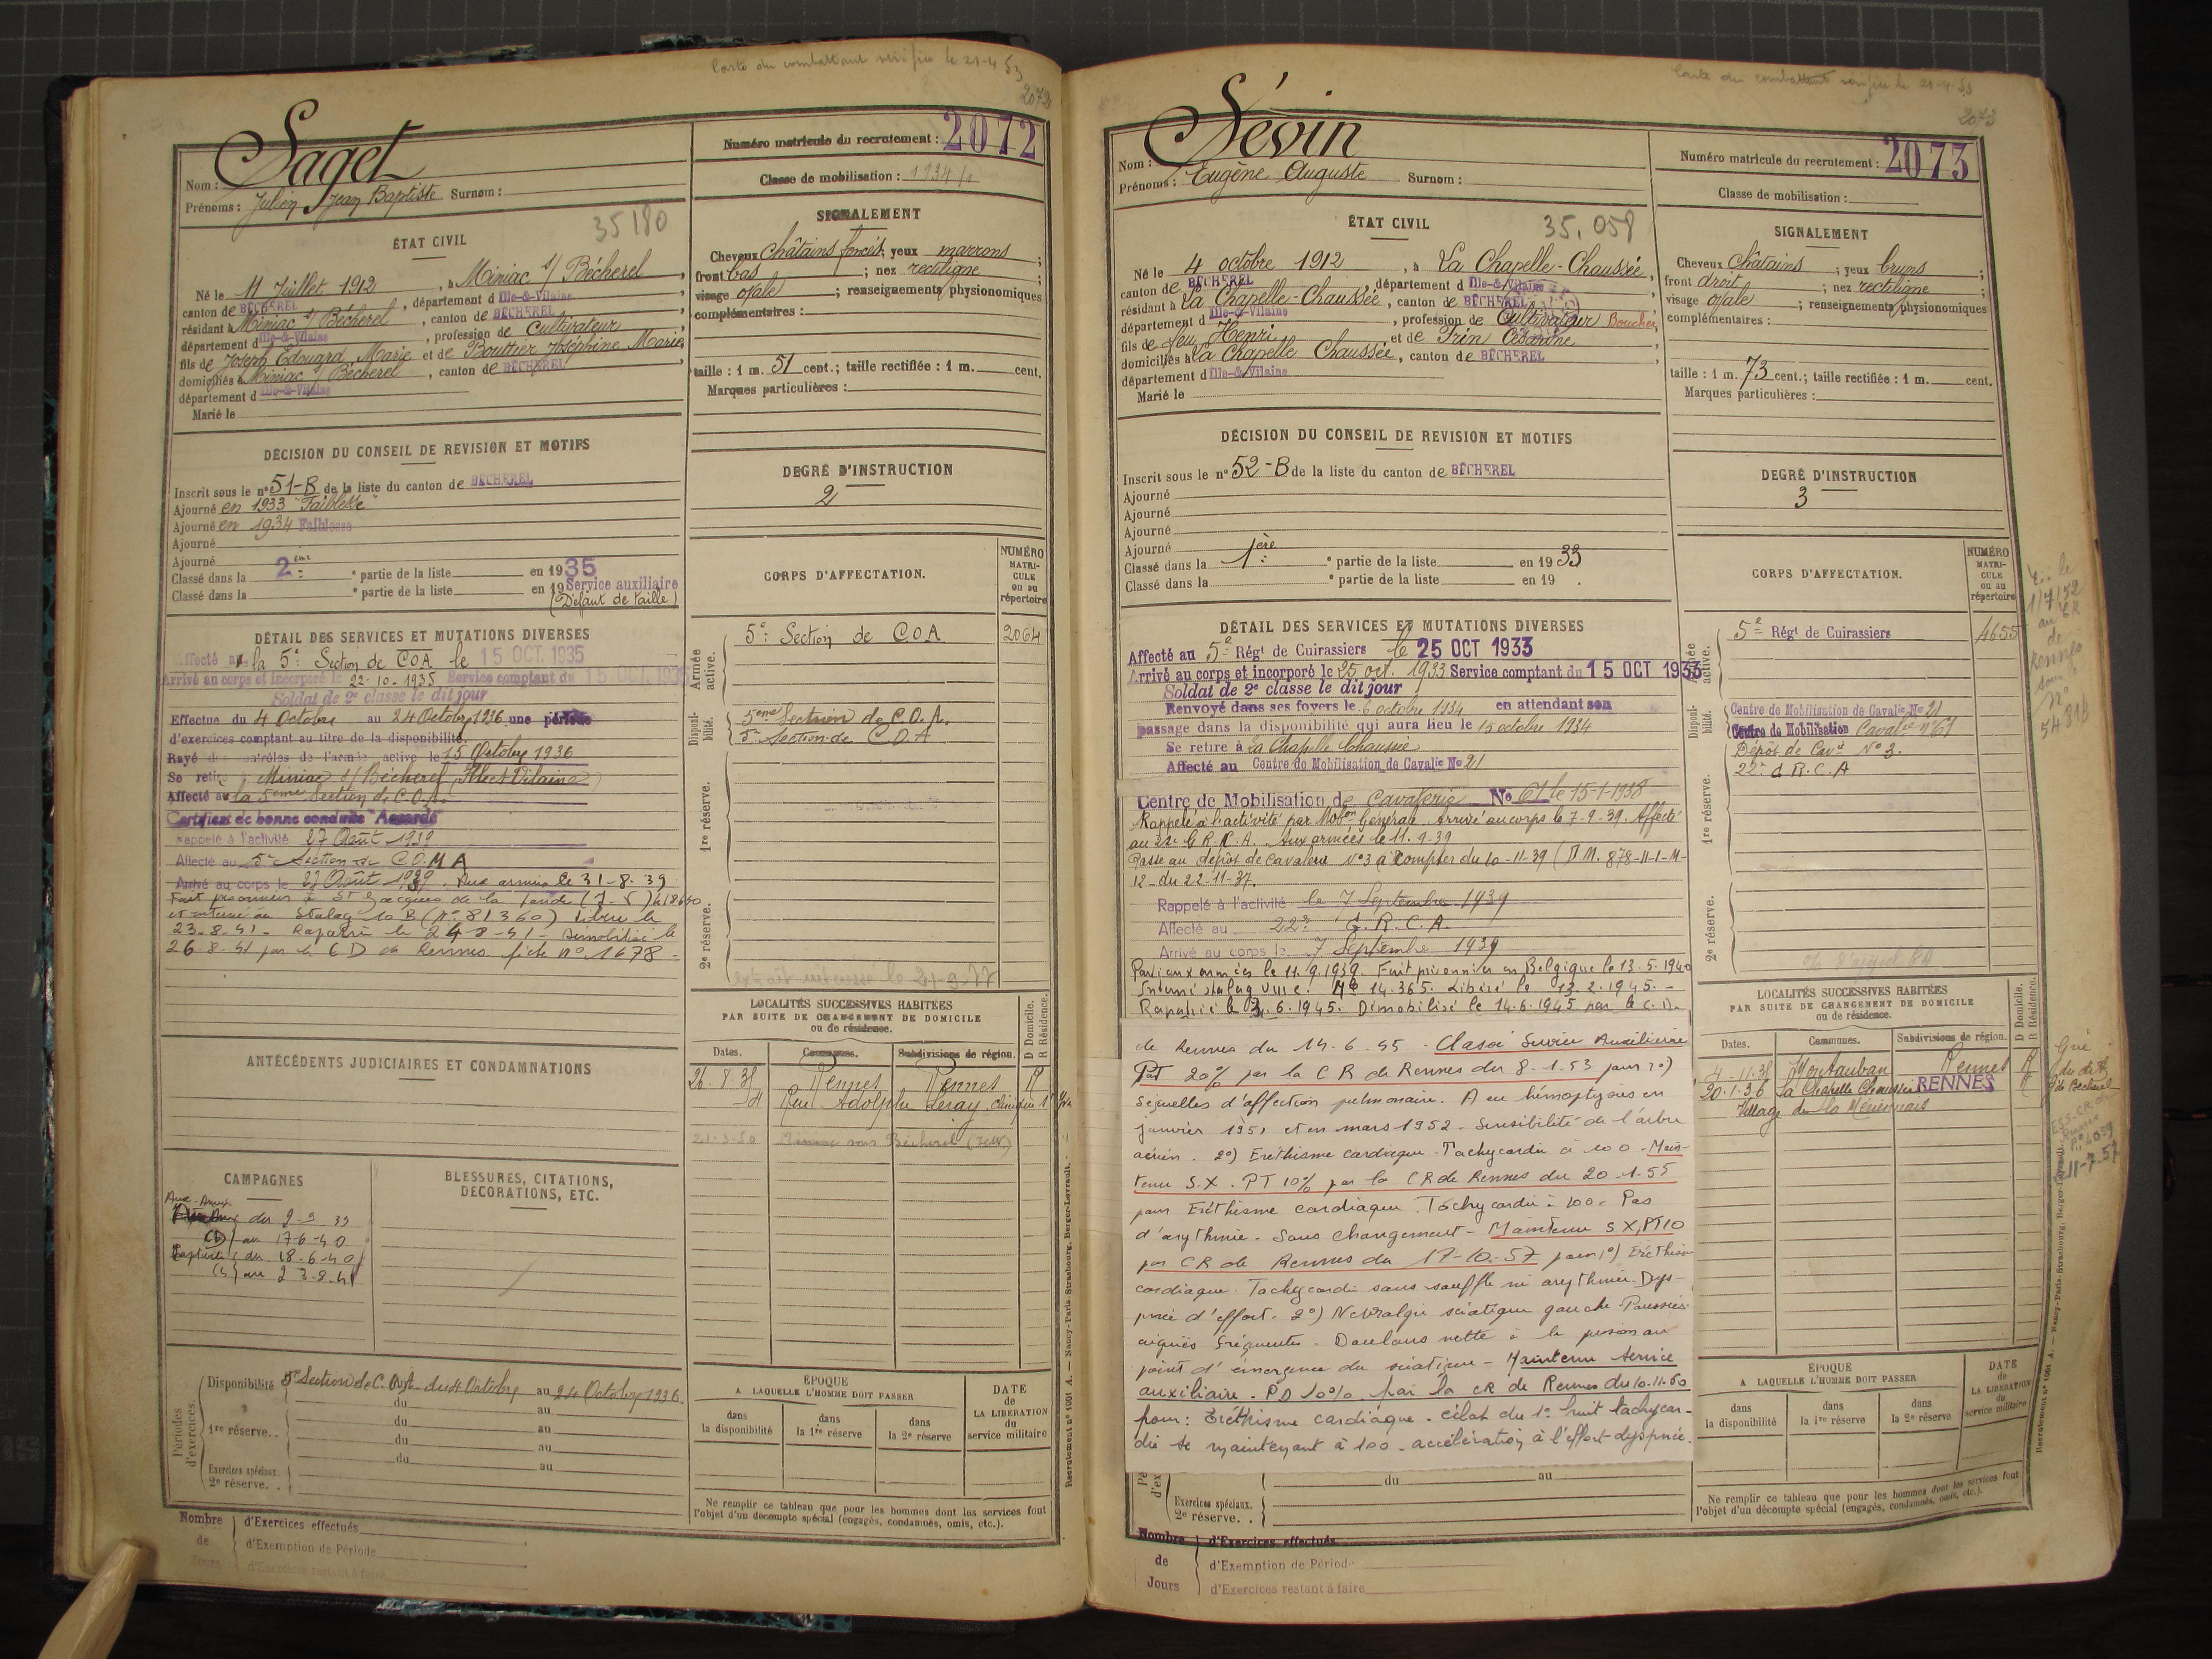 Carte du combattant vérifiée le 21-4-53
2072
Saget
Nom :
Prénoms : Julien Jean Baptiste Surnom :
Numéro matricule du recrutement : 2072
Classe de mobilisation : 1934
35180
ÉTAT CIVIL
Né le 11 Juillet 1912, à Miniac s/ Bécherel,
canton de BÉCHEREL, département d Ille-&-Vilaine
résidant à Miniac s/ Bécherel, canton de BÉCHEREL
département d Ille-&-Vilaine, profession de Cultivateur
fils de Joseph Édouard Marie et de Bouttier Joséphine Marie
domiciliés à Miniac s/ Bécherel, canton de BÉCHEREL
département d Ille-&-Vilaine
Marié le
SIGNALEMENT
Cheveux châtains foncés; yeux marrons;
front bas; nez rectiligne;
visage ovale; renseignements physionomiques
complémentaires :
taille : 1 m. 51 cent.; taille rectifiée : 1 m. cent.
Marques particulières :
DÉCISION DU CONSEIL DE REVISION ET MOTIFS
Inscrit sous le n° 51-B de la liste du canton de BÉCHEREL
Ajourné en 1933 "Faiblesse"
Ajourné en 1934 Faiblesse
Ajourné
Ajourné
Classé dans la 2eme partie de la liste en 1935
Classé dans la partie de la liste en 19 Service auxiliaire
(Défaut de taille)
DEGRÉ D'INSTRUCTION
2
CORPS D'AFFECTATION.
NUMÉRO MATRICULE ou au répertoire
Armée active.
5e Section de COA 2064
Disponibilité.
5eme Section de C.O.A.
5e Section de C.O.A
1re réserve.
2e réserve.
DÉTAIL DES SERVICES ET MUTATIONS DIVERSES
Affecté à la 5e Section de COA le 15 OCT. 1935
Arrivé au corps et incorporé le 22-10-1935 Service comptant du 15 OCT. 1935
Soldat de 2e classe le dit jour
Effectue du 4 Octobre au 24 Octobre 1936 une période
d'exercices comptant au titre de la disponibilité.
Rayé des contrôles de l'armée active le 15 Octobre 1936
Se retire à Miniac s/ Bécherel (Ille et Vilaine)
Affecté à la 5eme Section de C.O.A.
Certificat de bonne conduite "Accordé"
Rappelé à l'activité 27 Août 1939
Affecté au 5e Section de C.O.M.A
Arrivé au corps le 27 Août 1939. Aux armées le 31-8-39
Fait prisonnier à St Jacques de la Lande (I-V) le 18640
et interné au Stalag 10 B (N° 81360) Libéré le
23-8-41 - Rapatrié le 24-8-41 - Démobilisé le
26-8-41 par le CD de Rennes fiche n° 1678 -
ANTÉCÉDENTS JUDICIAIRES ET CONDAMNATIONS
LOCALITÉS SUCCESSIVES HABITÉES
PAR SUITE DE CHANGEMENT DE DOMICILE
ou de résidence.
D Domicile.
R Résidence.
Dates. Communes. Subdivisions de région.
26-8-38 Rennes Rennes R
Rue Adolphe Leray
21-3-50
CAMPAGNES
Aux Armées
du 2-9-39
CD au 17-6-40
Captivité du 18-6-40
au 23-8-41
BLESSURES, CITATIONS,
DÉCORATIONS, ETC.
Périodes d'exercices.
Disponibilité 5e Section de C.O.A. du 4 Octobre au 24 Octobre 1936.
du au
1re réserve. . du au
du au
du au
Exercices spéciaux.
2e réserve. .
ÉPOQUE
A LAQUELLE L'HOMME DOIT PASSER
dans la disponibilité
dans la 1re réserve
dans la 2e réserve
DATE de LA LIBÉRATION du service militaire
Ne remplir ce tableau que pour les hommes dont les services font
l'objet d'un décompte spécial (engagés, condamnés, omis, etc.).
Nombre de Jours
d'Exercices effectués
d'Exemption de Période
d'Exercices restant à faire
Recrutement n° 1001 A. — Nancy-Paris-Strasbourg, Berger-Levrault.
Carte du combattant vérifiée le 21-4-53
2073
Sévin
Nom :
Prénoms : Eugène Auguste Surnom :
Numéro matricule du recrutement : 2073
Classe de mobilisation :
35.058
ÉTAT CIVIL
Né le 4 octobre 1912, à La Chapelle-Chaussée,
canton de BÉCHEREL, département d Ille-&-Vilaine
résidant à La Chapelle-Chaussée, canton de BÉCHEREL
département d Ille-&-Vilaine, profession de Cultivateur Boucher
fils de feu Henri et de Trin Césarine
domiciliés à La Chapelle Chaussée, canton de BÉCHEREL
département d Ille-&-Vilaine
Marié le
SIGNALEMENT
Cheveux châtains; yeux bruns;
front droit; nez rectiligne;
visage ovale; renseignements physionomiques
complémentaires :
taille : 1 m. 73 cent.; taille rectifiée : 1 m. cent.
Marques particulières :
DÉCISION DU CONSEIL DE REVISION ET MOTIFS
Inscrit sous le n° 52-B de la liste du canton de BÉCHEREL
Ajourné
Ajourné
Ajourné
Ajourné
Classé dans la 1ère partie de la liste en 1933
Classé dans la partie de la liste en 19 .
DEGRÉ D'INSTRUCTION
3
CORPS D'AFFECTATION.
NUMÉRO MATRICULE ou au répertoire
Armée active.
5e Régt de Cuirassiers 4655
Disponibilité.
Centre de Mobilisation de Cavalie No 21
Centre de Mobilisation Cavalerie n° 61
Dépôt de Cavie N° 3.
22e G R.C.A
1re réserve.
2e réserve.
1/7/52
au CR
de
Rennes
sous
n°
54818
DÉTAIL DES SERVICES ET MUTATIONS DIVERSES
Affecté au 5e Régt de Cuirassiers le 25 OCT 1933
Arrivé au corps et incorporé le 25 oct. 1933 Service comptant du 15 OCT 1933
Soldat de 2e classe le dit jour
Renvoyé dans ses foyers le 6 octobre 1934 en attendant son
passage dans la disponibilité qui aura lieu le 15 octobre 1934
Se retire à La Chapelle Chaussée
Affecté au Centre de Mobilisation de Cavalie No 21
Centre de Mobilisation de Cavalerie No 61 le 15-1-1938
Rappelé à l'activité par Mobon Générale. Arrivé au corps le 7-9-39. Affecté
au 22e G.R.C.A. Aux armées le 11-9-39
Passe au dépôt de Cavalerie N°3 à compter du 10-11-39 (D.M. 878-11-1-M-
12- du 22-11-37.
Rappelé à l'activité le 7 Septembre 1939
Affecté au 22e G.R.C.A.
Arrivé au corps le 7 Septembre 1939
Parti aux armées le 11.9.1939. Fait prisonnier en Belgique le 13.5.1940
Interné stalag VIII C. Mle 14.365. Libéré le 13.2.1945. -
Rapatrié le 3.6.1945. Démobilisé le 14.6.1945 par le C.D.
de Rennes du 14-6-45. Classé Service Auxiliaire
PT 20% par la CR de Rennes du 8-1-53 pour 1°)
Séquelles d'affection pulmonaire. A eu hémoptysies en
janvier 1951 et en mars 1952. Sensibilité de l'arbre
aérien. 2°) Eréthisme cardiaque - Tachycardie à 100 - Main-
tenu S.X. PT 10% par la CR de Rennes du 20-1-55
pour Eréthisme cardiaque. Tachycardie à 100. Pas
d'arythmie. Sans changement - Maintenu SX, PT10
par CR de Rennes du 17-10-57 pour 1°) Eréthisme
cardiaque. Tachycardie sans souffle ni arythmie. Dys-
pnée d'effort. 2°) Névralgie sciatique gauche. Poussées
aiguës fréquentes. Douleurs nette à la pression au
point d'émergence du sciatique - Maintenu Service
auxiliaire. PD 10% par la CR de Rennes du 10-11-60
pour : Eréthisme cardiaque. éclat du 1er bruit tachycar-
die se maintenant à 100 - accélération à l'effort - dyspnée.
LOCALITÉS SUCCESSIVES HABITÉES
PAR SUITE DE CHANGEMENT DE DOMICILE
ou de résidence.
D Domicile.
R Résidence.
Dates. Communes. Subdivisions de région.
4-11-35 Montauban Rennes R
20.1.36 La Chapelle Chaussée RENNES R
Village de la
11-7-57
du au
Exercices spéciaux.
2e réserve. .
ÉPOQUE
A LAQUELLE L'HOMME DOIT PASSER
dans la disponibilité
dans la 1re réserve
dans la 2e réserve
DATE de LA LIBÉRATION du service militaire
Ne remplir ce tableau que pour les hommes dont les services font
l'objet d'un décompte spécial (engagés, condamnés, omis, etc.).
Nombre de Jours
d'Exercices effectués
d'Exemption de Période
d'Exercices restant à faire
Recrutement n° 1001 A. — Nancy-Paris-Strasbourg, Berger-Levrault.